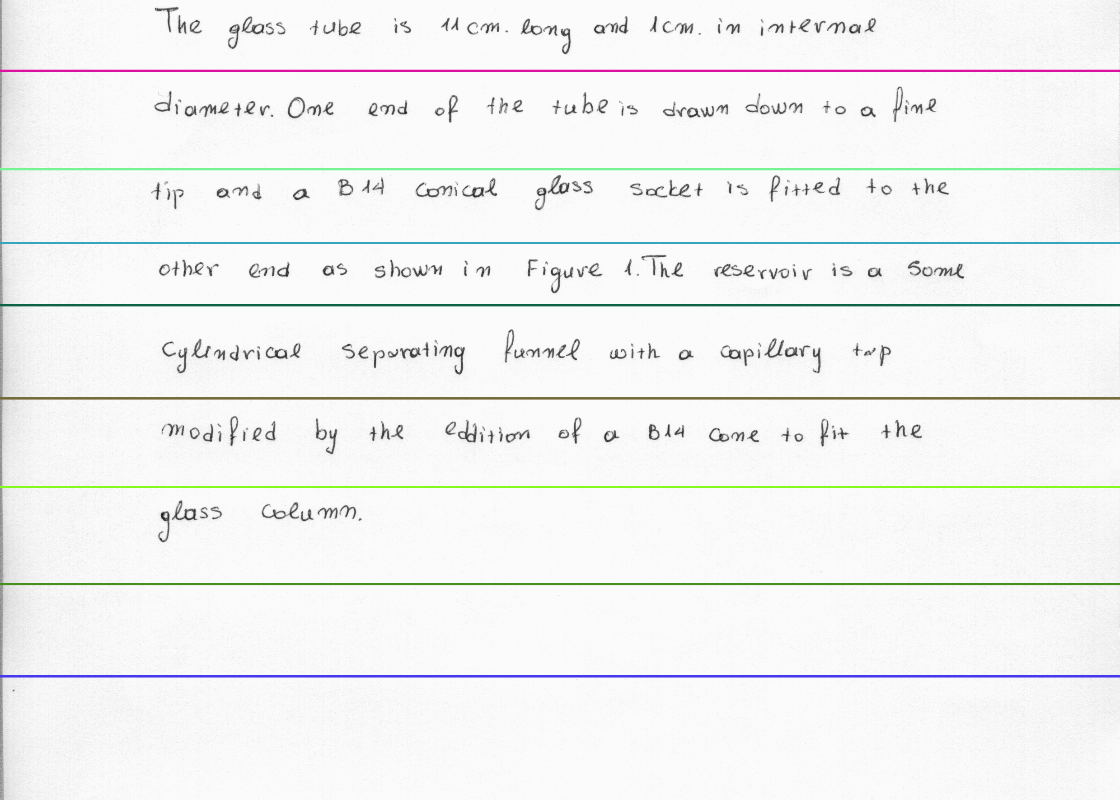 The glass tube is 11 cm. long and 1cm. in internal
diameter. One end of the tube is drawn down to a fine
tip and a B 14 conical glass socket is fitted to the
other end as shown in Figure 1. The reservoir is a some
Cylindrical separating funnel with a capillary tap
modified by the eddition of a B14 cone to fit the
glass column.